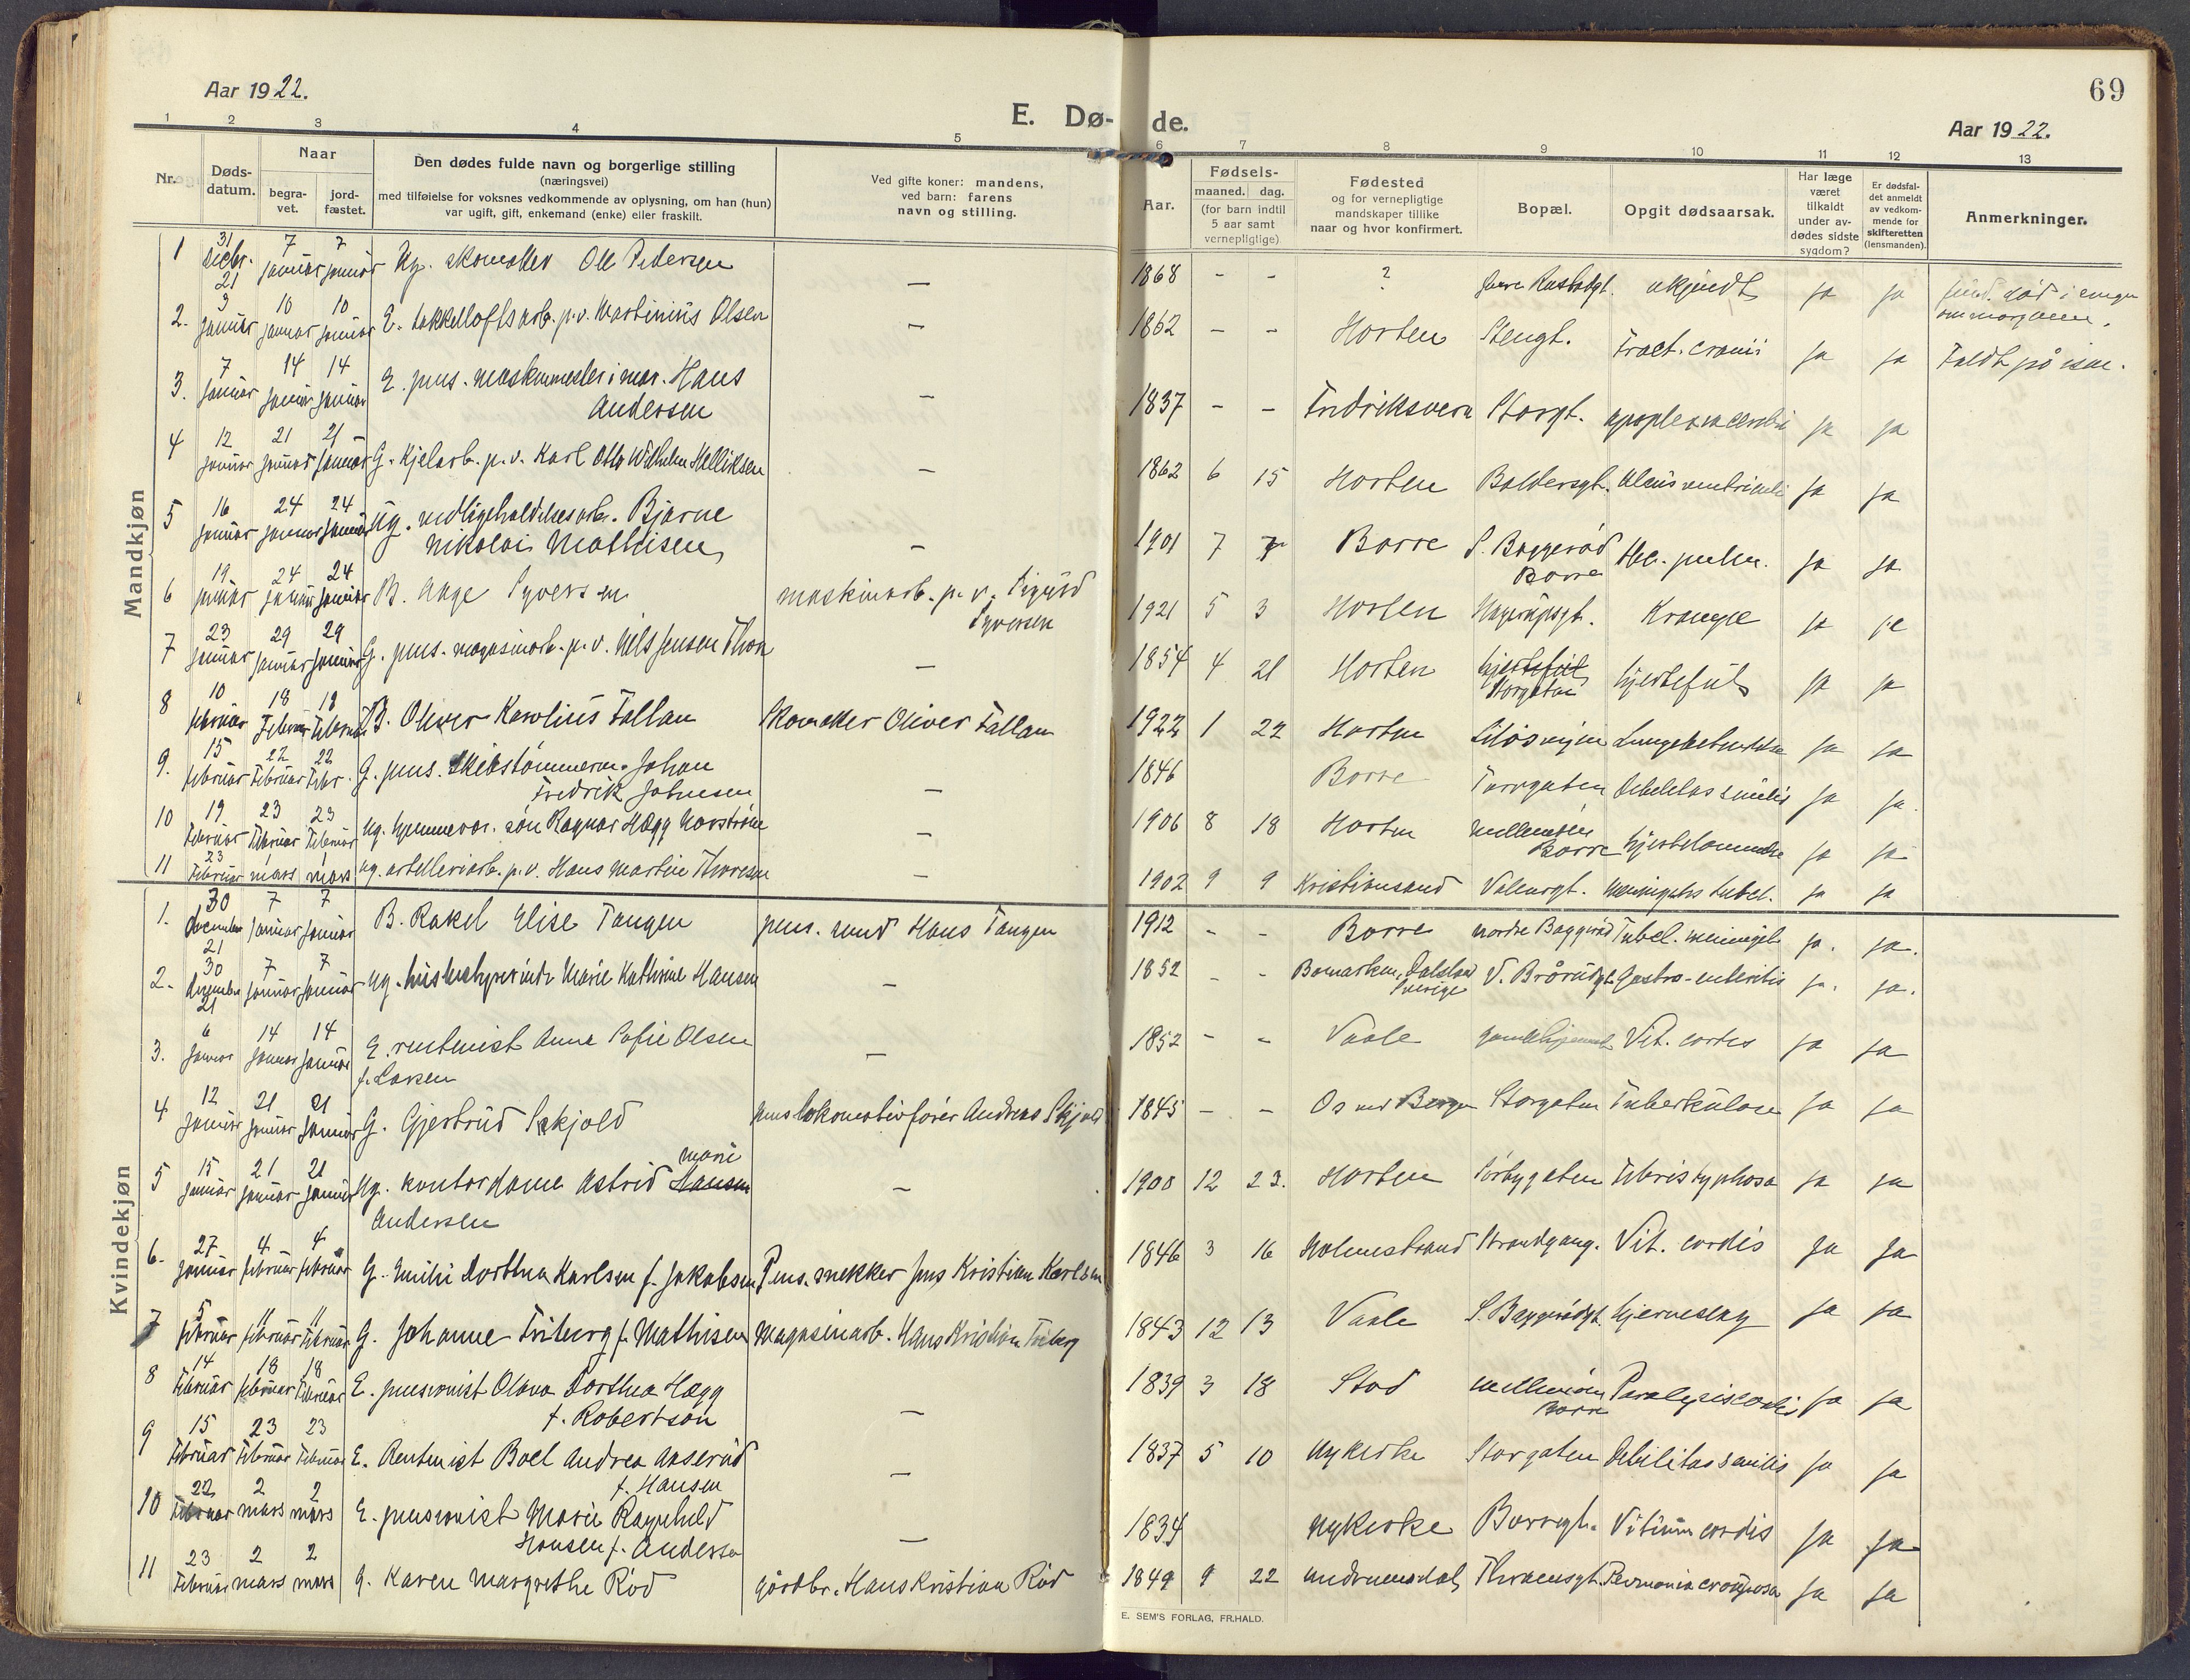 Aar 1922.
E. Dø-
de.
69
Aar 1922.
1 2 3 4 5 6 7 8 9 10 11 12 13
Nr. Døds-datum. Naar begra-vet. jord-fæstet.
Den dødes fulde navn og borgerlige stilling
(næringsvei)
med tilføielse for voksnes vedkommende av oplysning, om han (hun)
var ugift, gift, enkemand (enke) eller fraskilt.
Ved gifte koner: mandens,
ved barn: farens
navn og stilling.
Aar. Fødsels- maaned. dag.
(for barn indtil
5 aar samt
vernepligtige)
Fødested
og for vernepligtige
mandskaper tillike
naar og hvor konfirmert.
Bopæl.
Opgit dødsaarsak.
Har læge
været
tilkaldt
under av-
dødes sidste
sygdom?
Er dødsfal-
det anmeldt
av vedkom-
mende for
skifteretten
(lensmanden).
Anmerkninger.
Mandkjøn
1 31 Decbr. 21 7 januar 7 januar Ug. skomaker Ole Pedersen — 1868 - - ? ukjendt ja ja død i engen om morgenen.
2. 3 januar 10 januar 10 januar E. takkelloftsarb. p.v. Martinius Olsen — 1862 - - Horten Stengt. Fract. cranii ja ja Faldt på isen.
3. 7 januar 14 januar 14 januar E. pens. maskinmester i mar. Hans
Andersen — 1837 - - Fredriksvern Storgt. apoplexia cerebri ja ja
4 12 januar 21 januar 21 januar G. Kjelarb. p.v. Karl Otto Wilhelm Helliksen — 1862 6 15 Horten Baldersgt. Ulcus ventriculi ja ja
5 16 januar 24 januar 24 januar Ug. vedligeholdelsesarb. Bjarne
Nikolai Mathisen — 1901 7 7 Borre S. Baggerød
Borre Tbc. pulm. ja ja
6 19 januar 24 januar 24 januar B. Aage Syversen maskinarb. p.v. Sigurd
Syversen 1921 5 3 Horten Hagerupsgt. Krampe ja ja
7 23 januar 29 januar 29 januar G. pens. magasinarb. p.v. Nils Jensen Thon — 1854 4 21 Horten hjertefeil
Storgaten hjertefeil ja ja
8 10 februar 18 Februar 18 Februar B. Oliver Karolius Fallan Skomaker Oliver Fallan 1922 1 22 Horten Lungebetændelse ja ja
9. 15 februar 22 Februar 22 Febr. G. pens. Skibstømmerm. Johan
Fredrik Johnsen — 1846 Borre Debilitas senilis ja ja.
10 19 Februar 23 Februar 23 Februar Ug. hjemmevær. søn Ragnar Hægg Navstrøm — 1906 8 18 Horten
Borre hjertelammelse ja ja
11 23 Februar 1 mars 1 mars ug. artelleriarb. p.v. Hans Martin Thoresen — 1902 9 9 Kristiansand Meningitis tubel. ja ja
Kvindekjøn
1. 30 December 21 7 januar 7 januar B. Rakel Elise Tangen pens. Hans Tangen 1912 - - Borre nordre Baggerød Tubel. meningit. ja. ja.
2. 30 december 21 7 januar 7 januar ug. husbestyrerinde Marie Kathrine Hansen — 1852 - - Bomarken, Dalsland
Sverige V. Brårudgt. Gastro-enteritis ja. ja.
3. 6 januar 14 januar 14 januar E. rentenist Anna Sofie Olsen
f. Larsen — 1852 - - Vaale gamlehjemmet Vit. cordis ja ja
4 12 januar 21 januar 21 januar G. Gjertrud Skjold pens lokomotivfører Andreas Skjold 1845 - - Os ved Bergen Storgaten Tuberkulose ja ja
5 15 januar 21 januar 21 januar Ug. kontordame Astrid Hansen Marie
Andersen — 1900 12 23. Horten Sørbygaten Febris typhosa ja ja
6. 27 januar 4 februar 4 februar G. Emilie Dorthea Karlsen f. Jakobsen Pens. snekker Jens Kristian Karlsen 1846 3 16 Holmestrand Strandgang. Vit. cordis ja ja
7 5 februar 11 februar 11 Februar G. Johanne Friberg f. Mathisen Magasinarb. Hans Kristian Friberg 1843 12 13 Vaale S. Baggerødgt. hjerneslag ja ja
8 14 Februar 18 februar 18 Februar E. pensionist Olava Dorthea Hægg
f. Robertson — 1839 3 18 Stod
Borre Paralysis cordis ja ja
9 15 Februar 23 Februar 23 Februar E. Rentenist Boel Andrea Aaserud
f. Hansen — 1837 5 10 Nykirke Storgaten Debilitas senilis ja ja
10 22 Februar 2 mars 2 mars E. pensionist Marie Ragnhild
Hansen f. Andersen — 1834 Nykirke Borregt. Vitium cordis ja ja
11 23 Februar 2 mars 2 mars G. Karen Margrethe Rød gårdbr. Hans Kristian Rød 1849 9 22 Undrumsdal Thranesgt. Pevmonia crouposa ja ja
E. SEM'S FORLAG, FR.HALD.